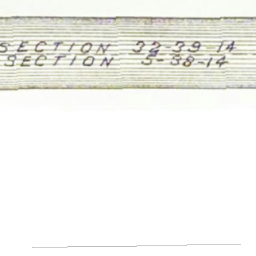 SECTION 32-39-14
SECTION 5-38-14